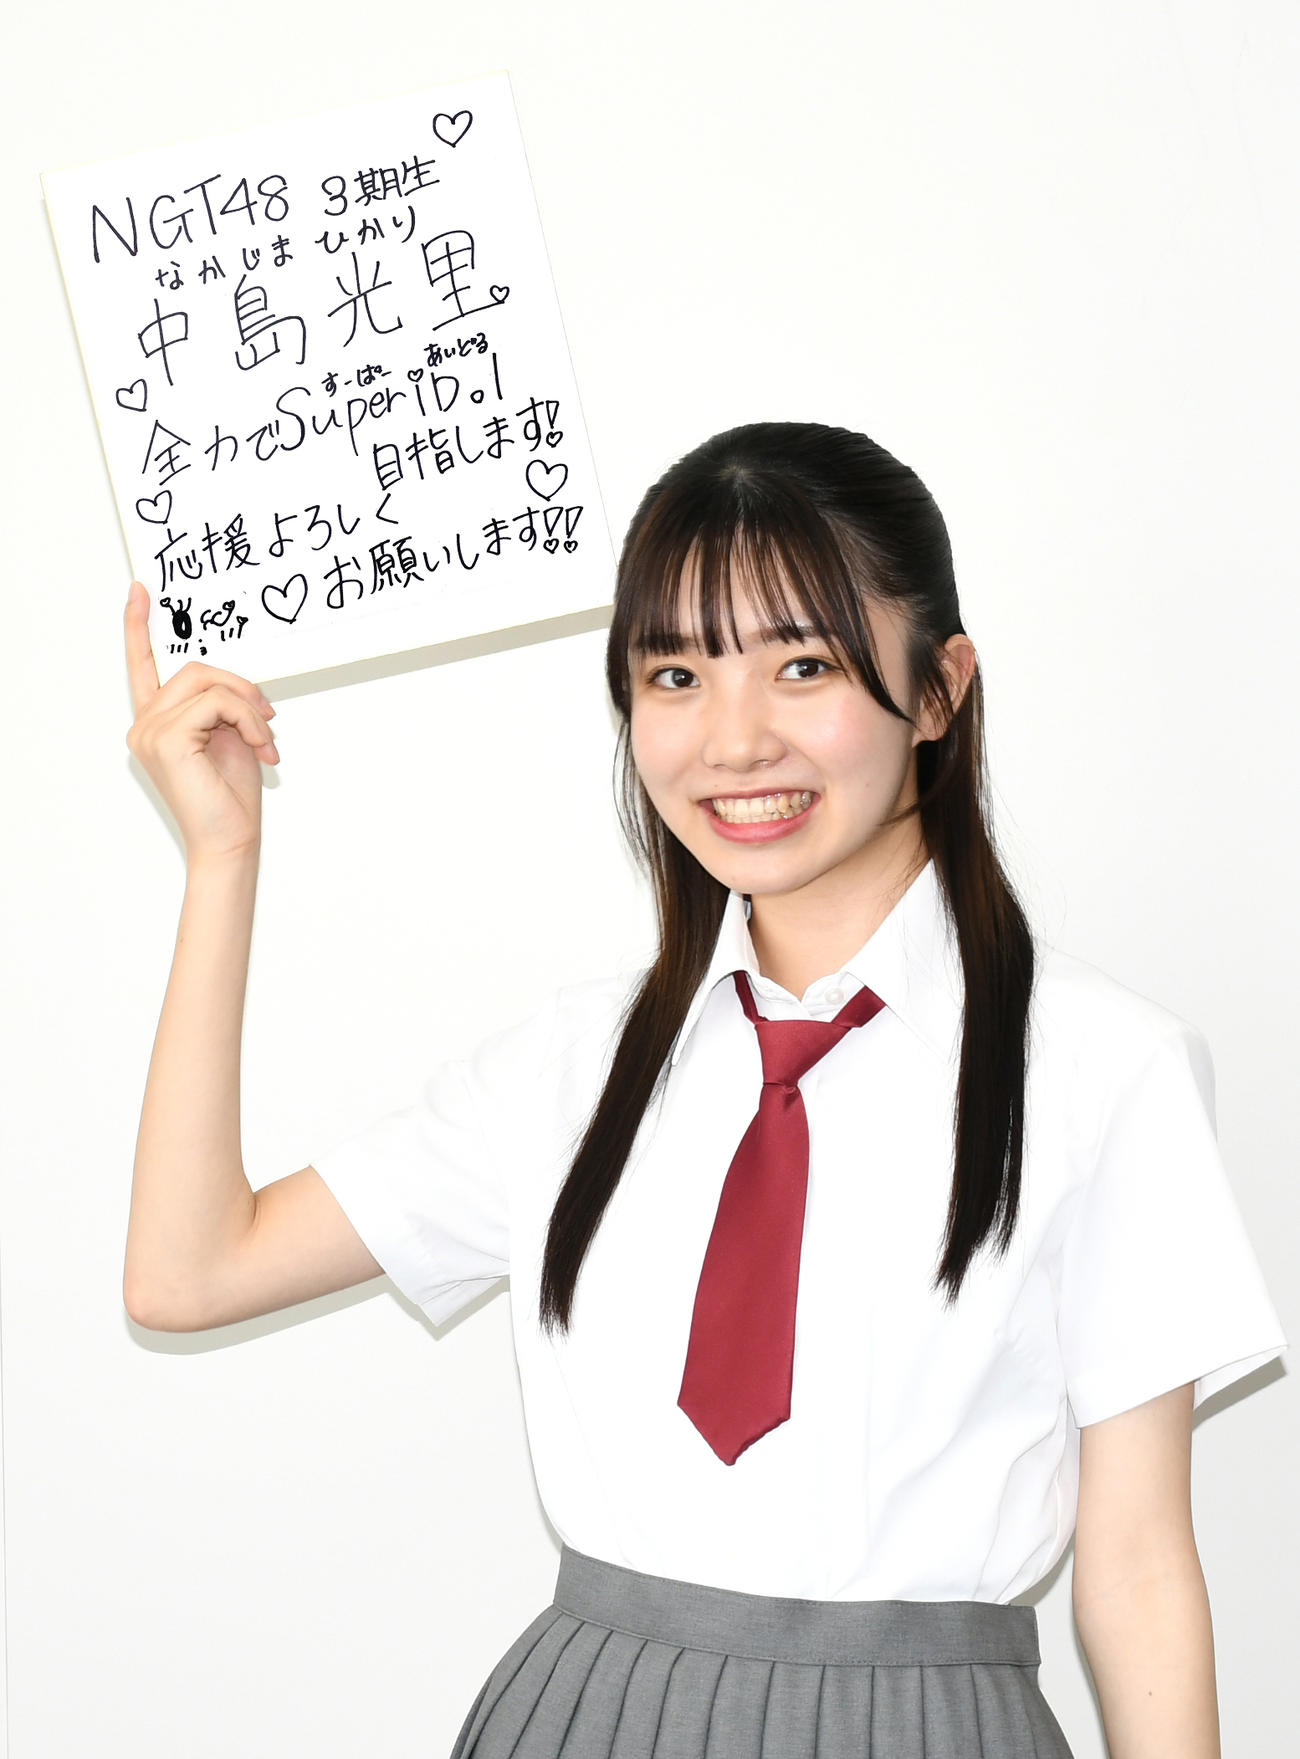 NGT48 3期生
なかじま ひかり
中島光里
すーぱー あいどる
全力でSuper iDol
目指します!
応援よろしく
お願いします!!